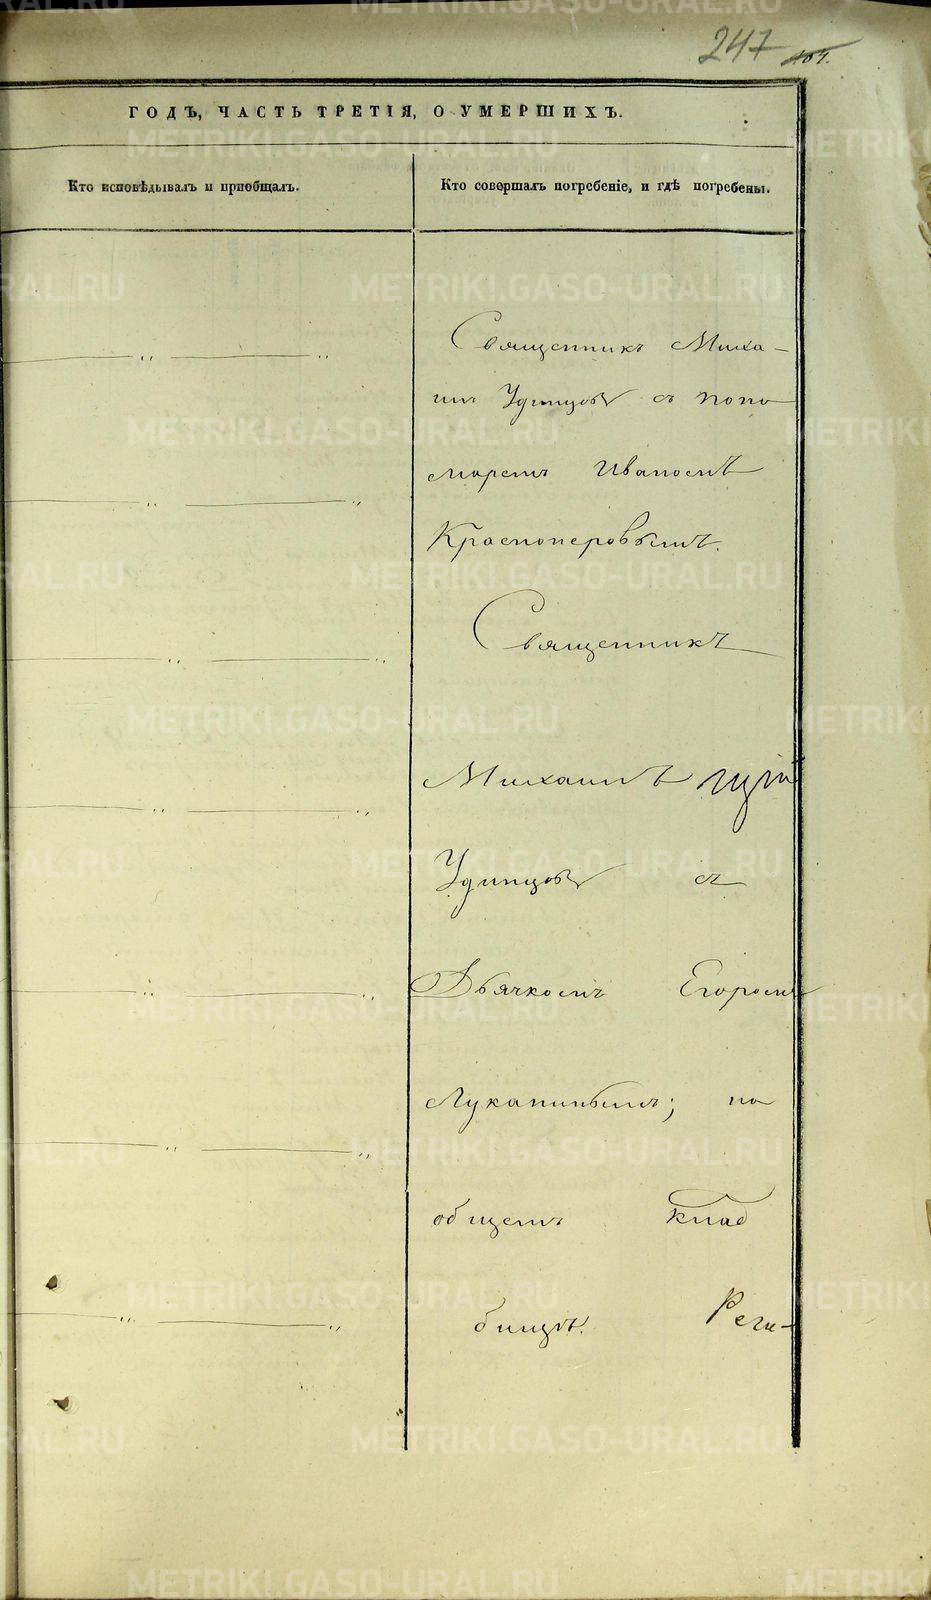 247 104.
ГОДЪ, ЧАСТЬ ТРЕТІЯ, О УМЕРШИХЪ.
Кто исповѣдывалъ и пріобщалъ.
Кто совершалъ погребеніе, и гдѣ погребены.
Священникъ Миха-
илъ Удинцовъ съ поно
маремъ Иваномъ
Красноперовымъ.
Священникъ
Михаилъ
Удинцовъ съ
Дьячкомъ Егоромъ
Луканинымъ; на
общемъ клад
бищѣ.
METRIKI.GASO-URAL.RU